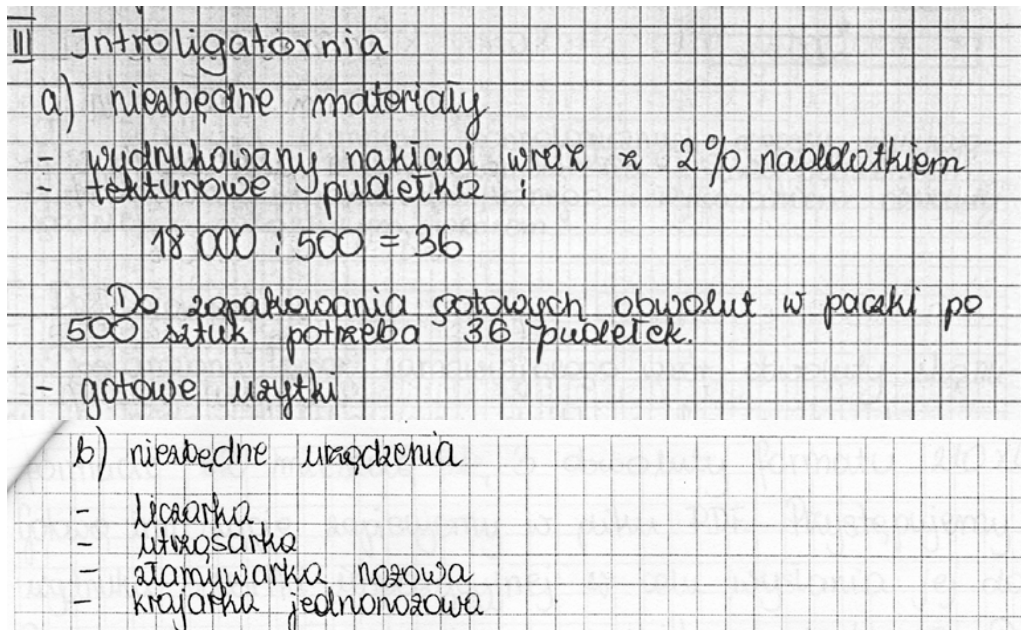 III Introligatornia
a) niezbędne materiały
- wydrukowany nakład wraz z 2% naddatkiem
- tekturowe pudełka :
18 000 : 500 = 36
Do zapakowania gotowych obwolut w paczki po
500 sztuk potrzeba 36 pudełek.
- gotowe użytki
b) niezbędne urządzenia
- liczarka
- utrząsarka
- złamywarka nożowa
- krajarka jednonożowa